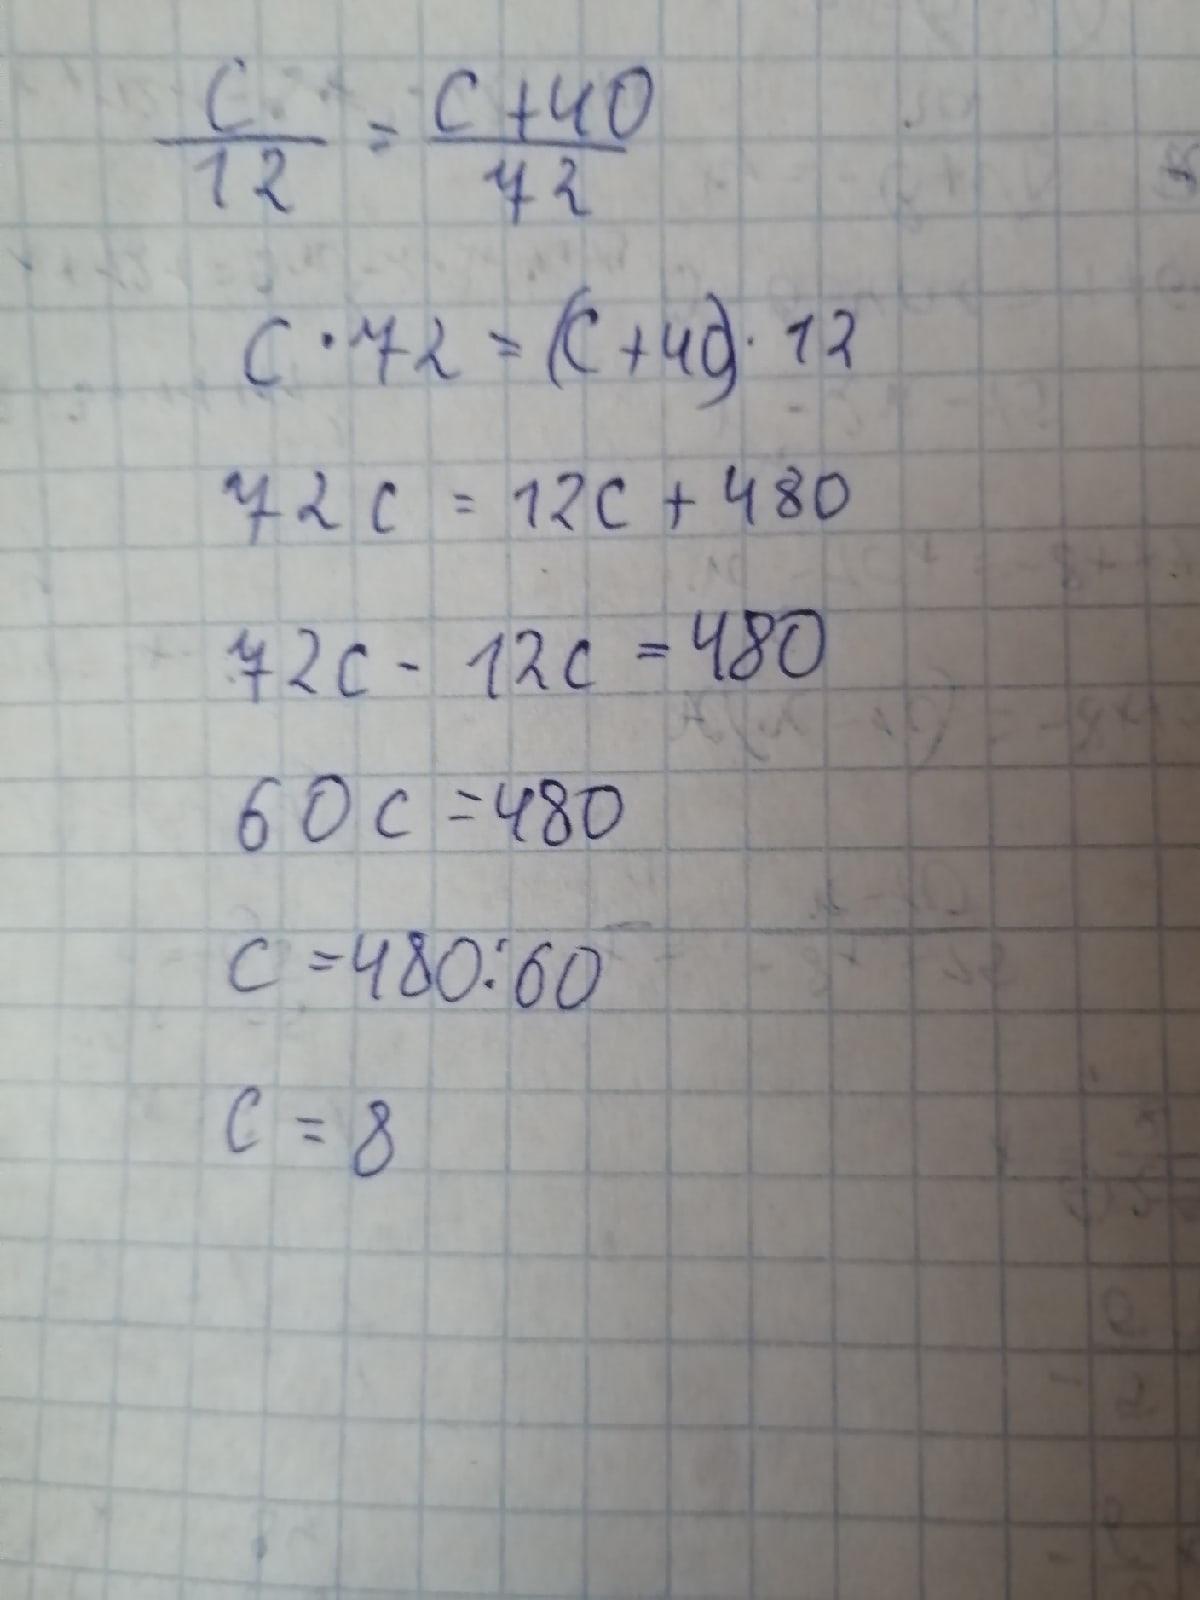 c/12 = c+40/72
c·72 = (c+40)·12
72c = 12c + 480
72c - 12c = 480
60c = 480
c = 480:60
c = 8